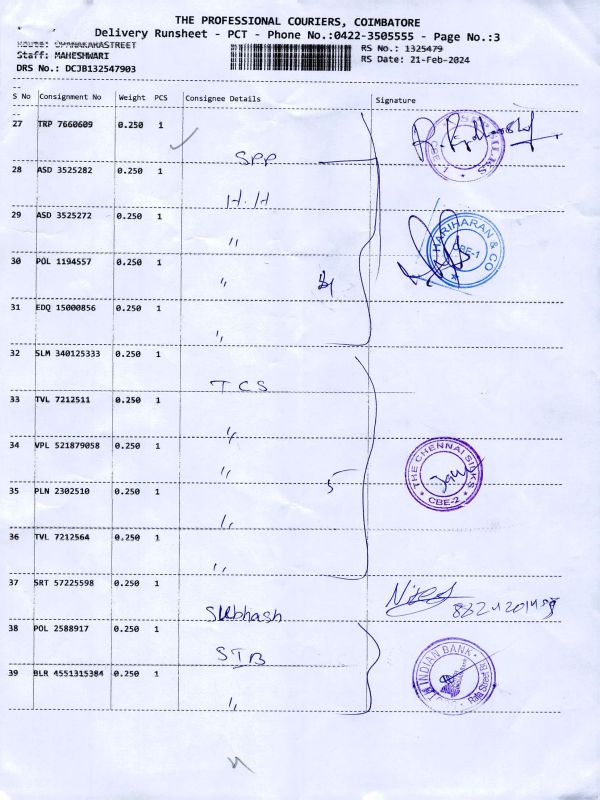 THE PROFESSIONAL COURIERS, COIMBATORE
Delivery Runsheet - PCT - Phone No.:0422-3505555 - Page No.:3
Staff: MAHESHWARI
DRS No.: DCJB132547903
RS No.: 1325479
RS Date: 21-Feb-2024
S No Consignment No Weight PCS Consignee Details Signature
27 TRP 7660609 0.250 1
SPP
CBE-1
28 ASD 3525282 0.250 1
H.H
29 ASD 3525272 0.250 1
"
HARIHARAN & CO
CBE-1
30 POL 1194557 0.250 1
"
31 EDQ 15000856 0.250 1
"
32 SLM 340125333 0.250 1
TCS
33 TVL 7212511 0.250 1
"
34 VPL 521879058 0.250 1
"
5
THE CHENNAI SILKS
CBE-2
35 PLN 2302510 0.250 1
"
36 TVL 7212564 0.250 1
"
37 SRT 57225598 0.250 1
Subhash
38 POL 2588917 0.250 1
STB
INDIAN BANK
39 BLR 4551315384 0.250 1
"